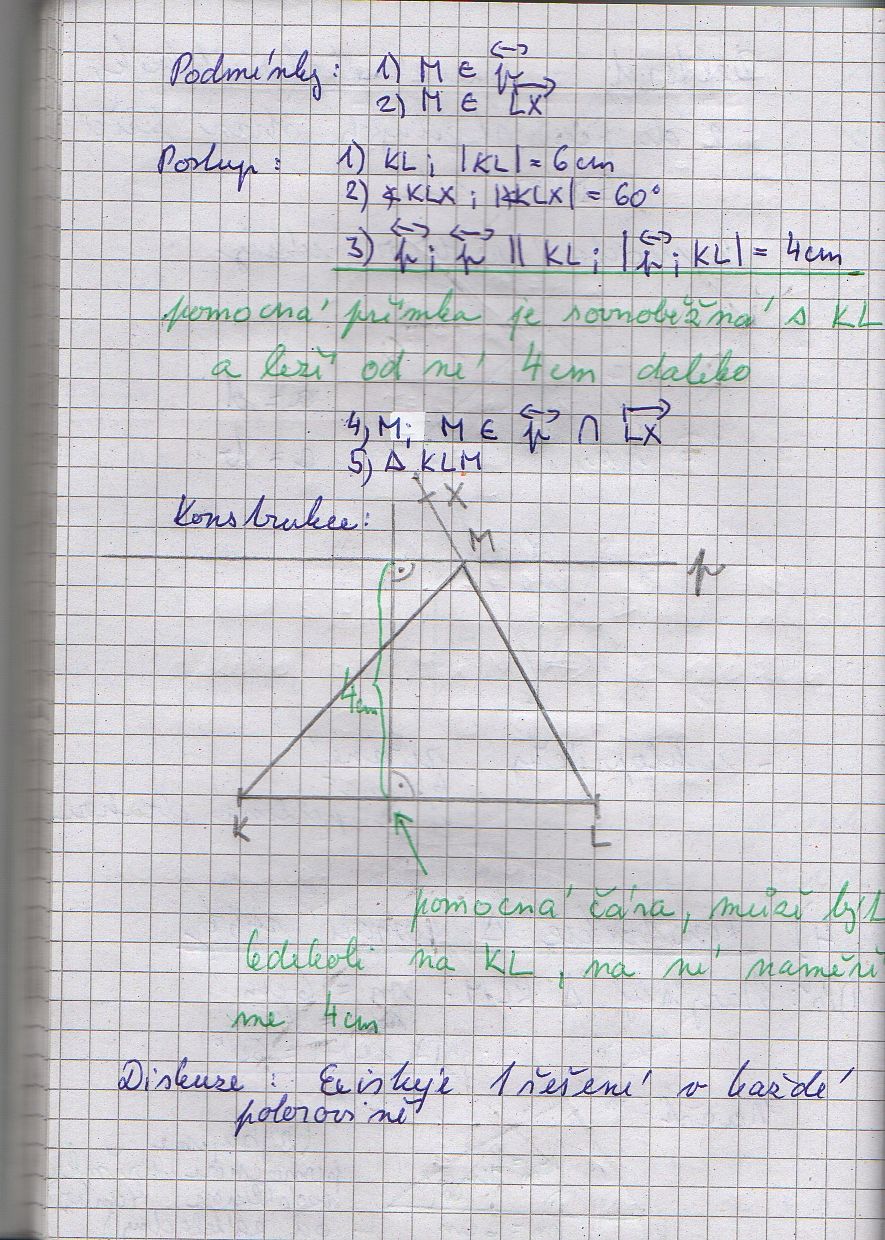 Podmínky: 1) M ∈ p
2) M ∈ LX
Postup: 1) KL; |KL| = 6cm
2) ∢KLX; |∢KLX| = 60°
3) p; p || KL; |p; KL| = 4cm
pomocná přímka je rovnoběžná s KL
a leží od ní 4cm daleko
4) M; M ∈ p ∩ LX
5) Δ KLM
Konstrukce:
X
M
p
4cm
K
L
pomocná čára, může být
kdekoli na KL, na ní naměří
me 4cm
Diskuze: Existuje 1 řešení v každé
polorovině